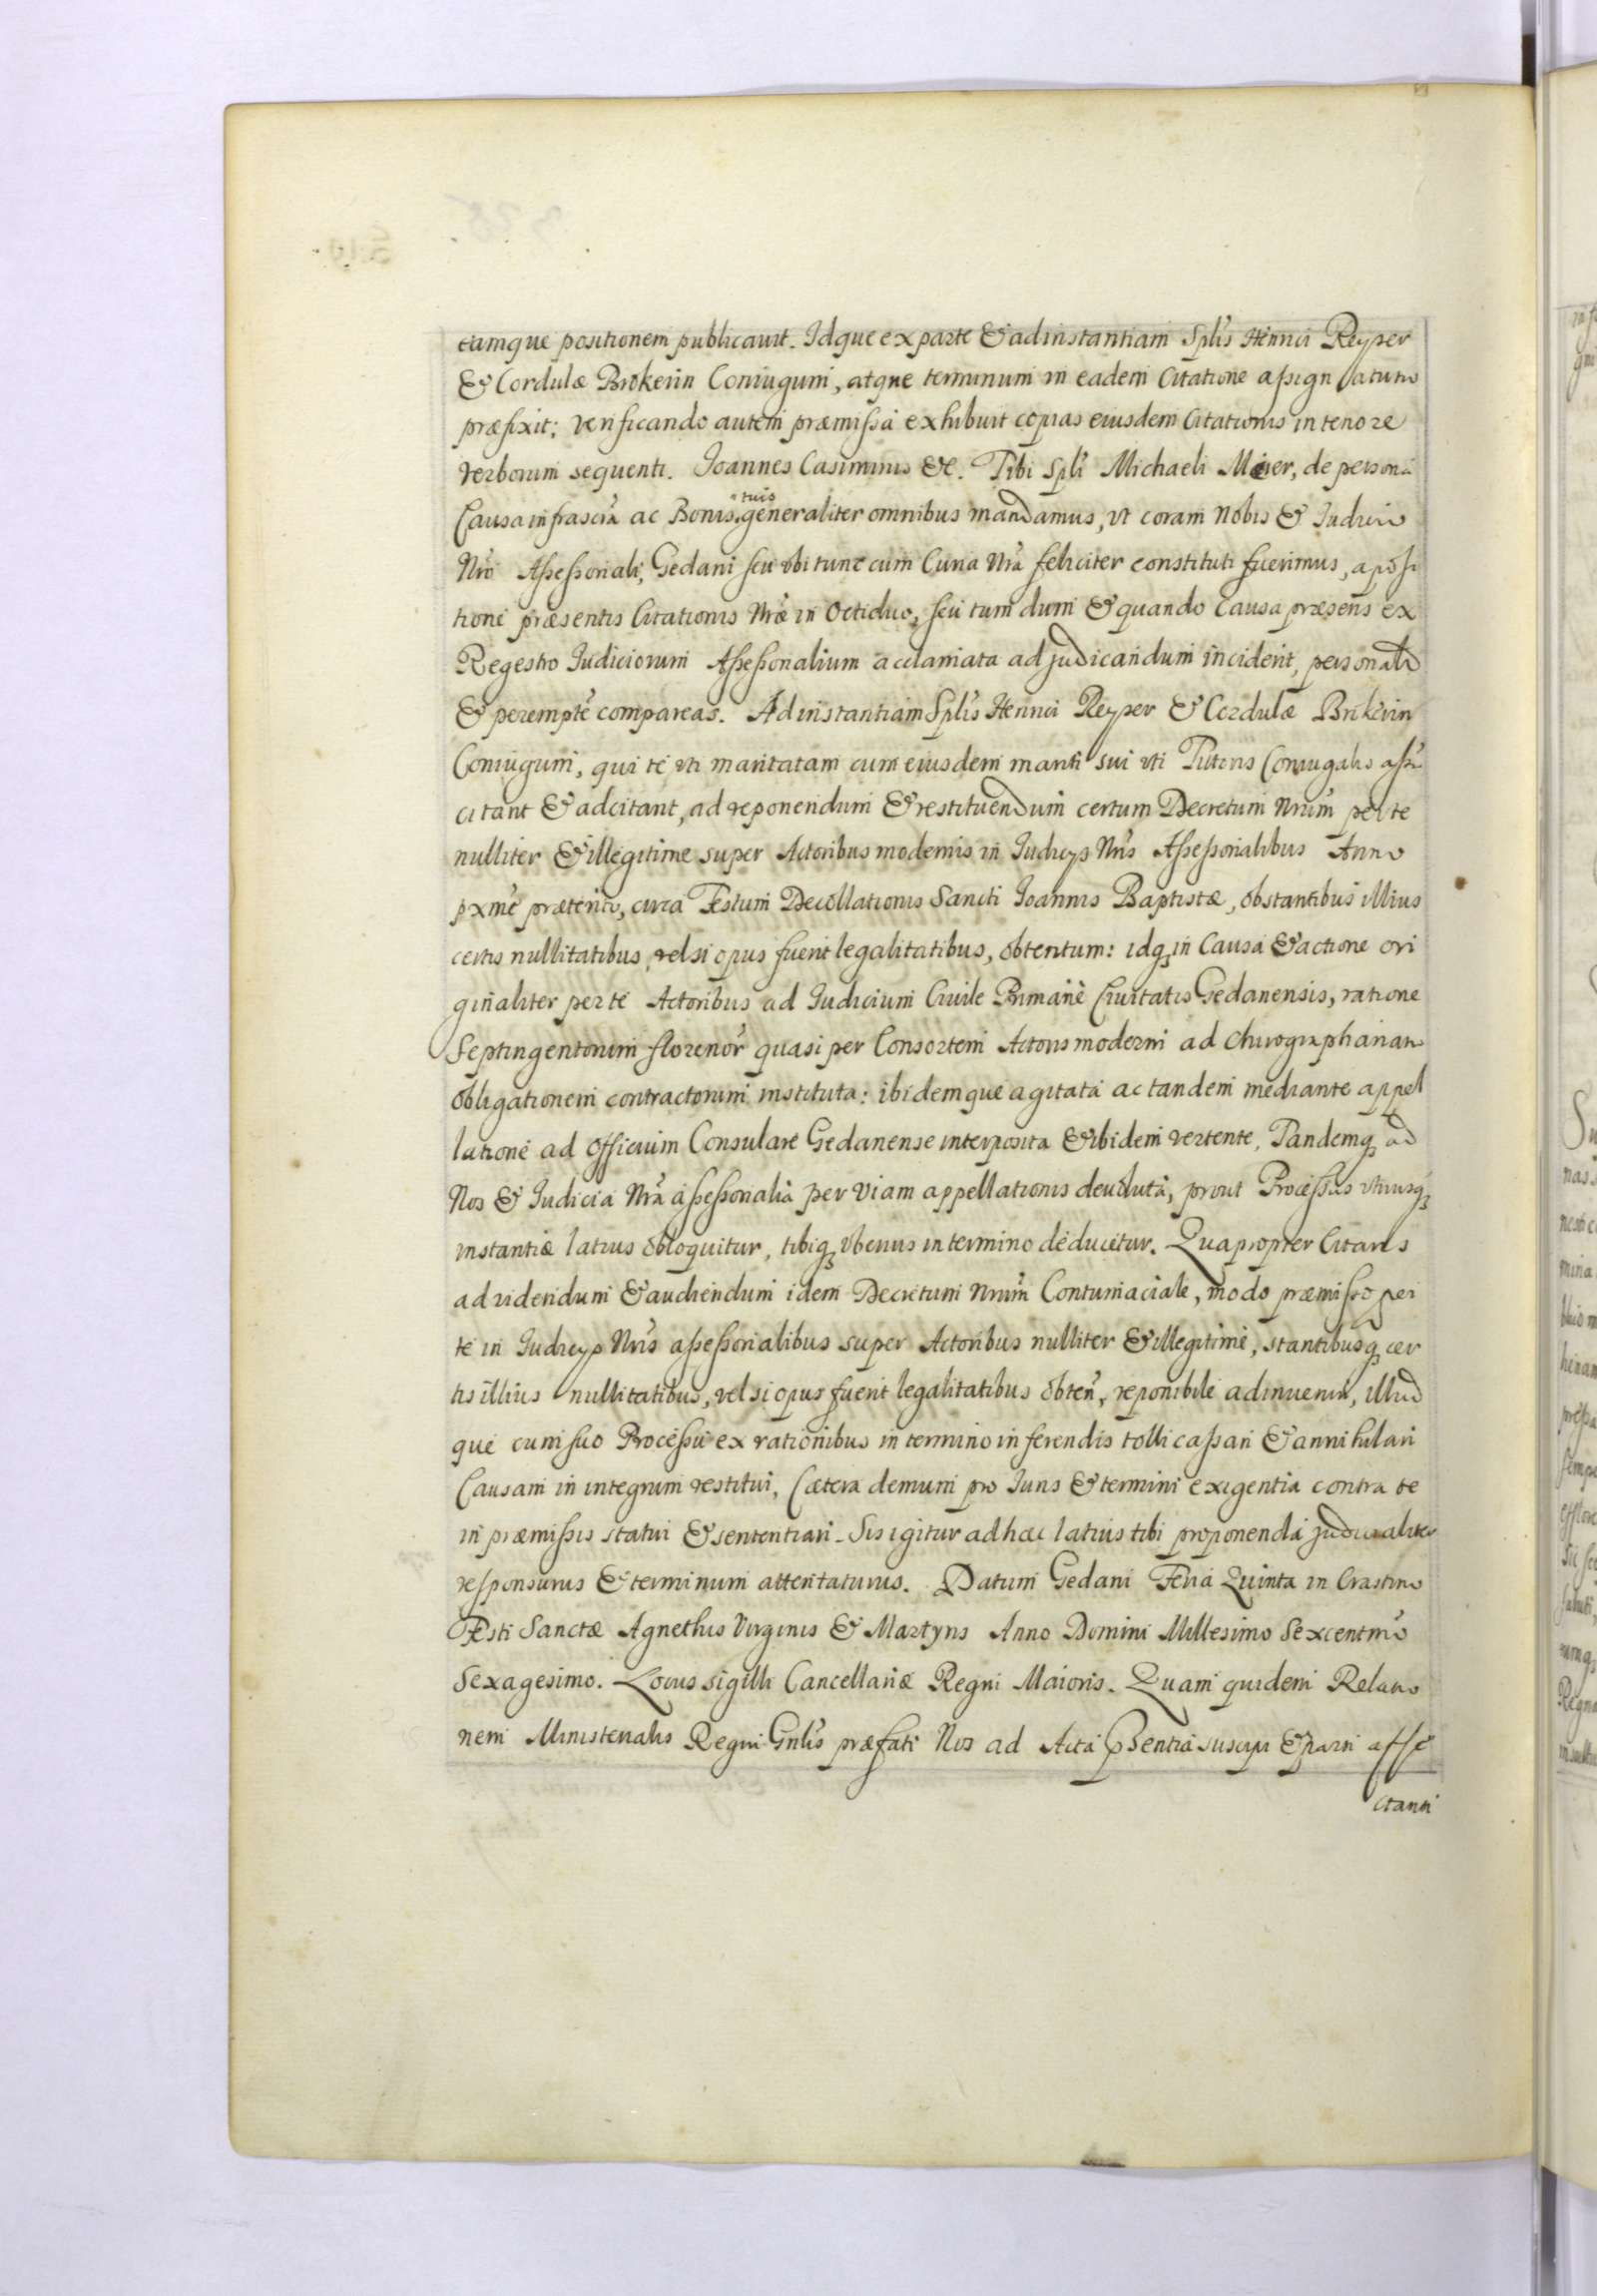 eamque positionem publicavit. Idque ex parte & ad instantiam Splis Henrici Reyper
& Cordulæ Brokerin Coniugum, atque terminum in eadem Citatione assignatum
præfixit; verificando autem præmissa exhibuit copias eiusdem Citationis in tenore
verborum sequenti. Joannes Casimirus &c. Tibi Spli Michaeli Meier, de persona
Causa infrascra ac Bonis tuis generaliter omnibus mandamus, vt coram Nobis & Judicio
Nro Assessoriali, Gedani seu vbi tunc cum Curia Nra feliciter constituti fuerimus, a posi
tione præsentis Citationis Nræ in Octiduo, seu tum dum & quando Causa præsens ex
Regestro Judiciorum Assessorialium acclamata ad judicandum inciderit, personalr
& perempte compareas. Ad instantiam Splis Henrici Reyper & Cordulæ Brikerin
Coniugum, qui te vti maritatam cum eiusdem mariti sui vti Tutoris Coniugalis assia
citant & adcitant, ad reponendum & restituendum certum Decretum Nrum per te
nulliter & illegitime super Actoribus modernis in Judicys Nris Assessorialibus Anno
pxme præterito, circa Festum Decollationis Sancti Joannis Baptistæ, obstantibus illius
certis nullitatibus, vel si opus fuerit legalitatibus, obtentum: idq in Causa & actione ori
ginaliter per te Actoribus ad Judicium Civile Primariæ Civitatis Gedanensis, ratione
Septingentorum florenor quasi per Consortem Actoris moderni ad Chirographariam
obligationem contractorum instituta: ibidemque agitata ac tandem mediante appel
latione ad Officium Consulare Gedanense interposita & ibidem vertente, Tandemq ad
Nos & Judicia Nra assessorialia per viam appellationis devoluta, prout Processus vtriusq
instantiæ latius obloquitur, tibiq vberius in termino deducetur. Quapropter Citaris
ad videndum & audiendum idem Decretum Nrum Contumaciale, modo præmisso per
te in Judicys Nris assessorialibus super Actoribus nulliter & illegitime, stantibusq cer
tis illius nullitatibus, vel si opus fuerit legalitatibus obten, reponibile adinueniri, illud
que cum suo Processu ex rationibus in termino inferendis tolli cassari & annihilari
Causam in integrum restitui, Cætera demum pro Juris & termini exigentia contra te
in præmissis statui & sententiari. Sis igitur ad hæc latius tibi proponenda judicialiter
responsurus & terminum attentaturus. Datum Gedani Feria Quinta in Crastino
Festi Sanctæ Agnethis Virginis & Martyris Anno Domini Millesimo Sexcentmo
Sexagesimo. Locus sigilli Cancellariæ Regni Maioris. Quam quidem Relatio
nem Ministerialis Regni Gnlis præfati Nos ad Acta psentia suscipi & parti affe
ctanti